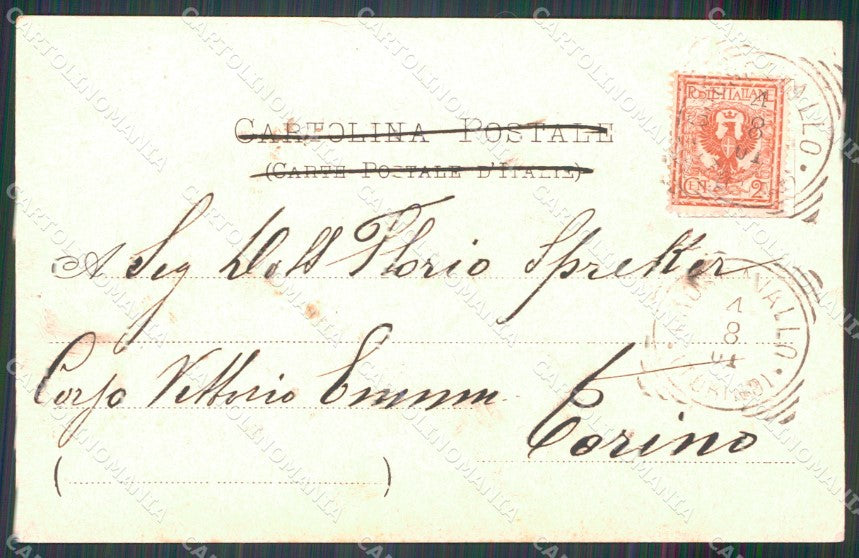 CARTOLINA POSTALE
(CARTE POSTALE D'ITALIE)
POSTE ITALIANE
CENT. 2
4
8
01
A Sig Dott Florio Sprekker
VALLO
4
8
01
Corso Vittorio Emmm
Torino
( )
CARTOLINOMANIA